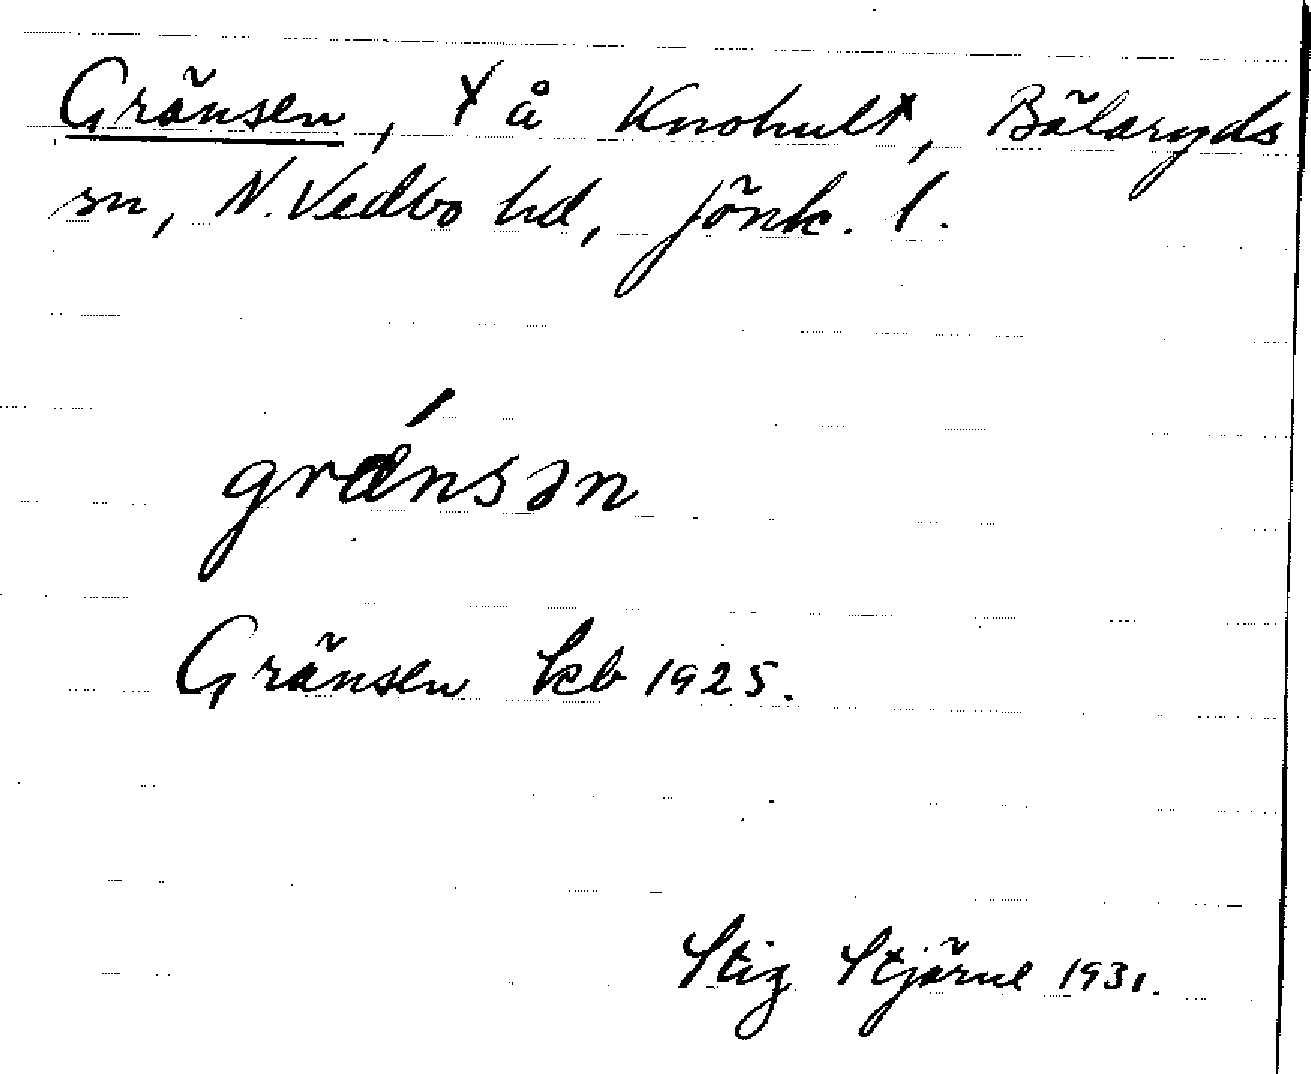 Gränsen, x å Knohult, Bälaryds
sn, N. Vedbo hd, Jönk. l.
grǽnsən
Gränsen kb 1925.
Stig Stjärne 1931.